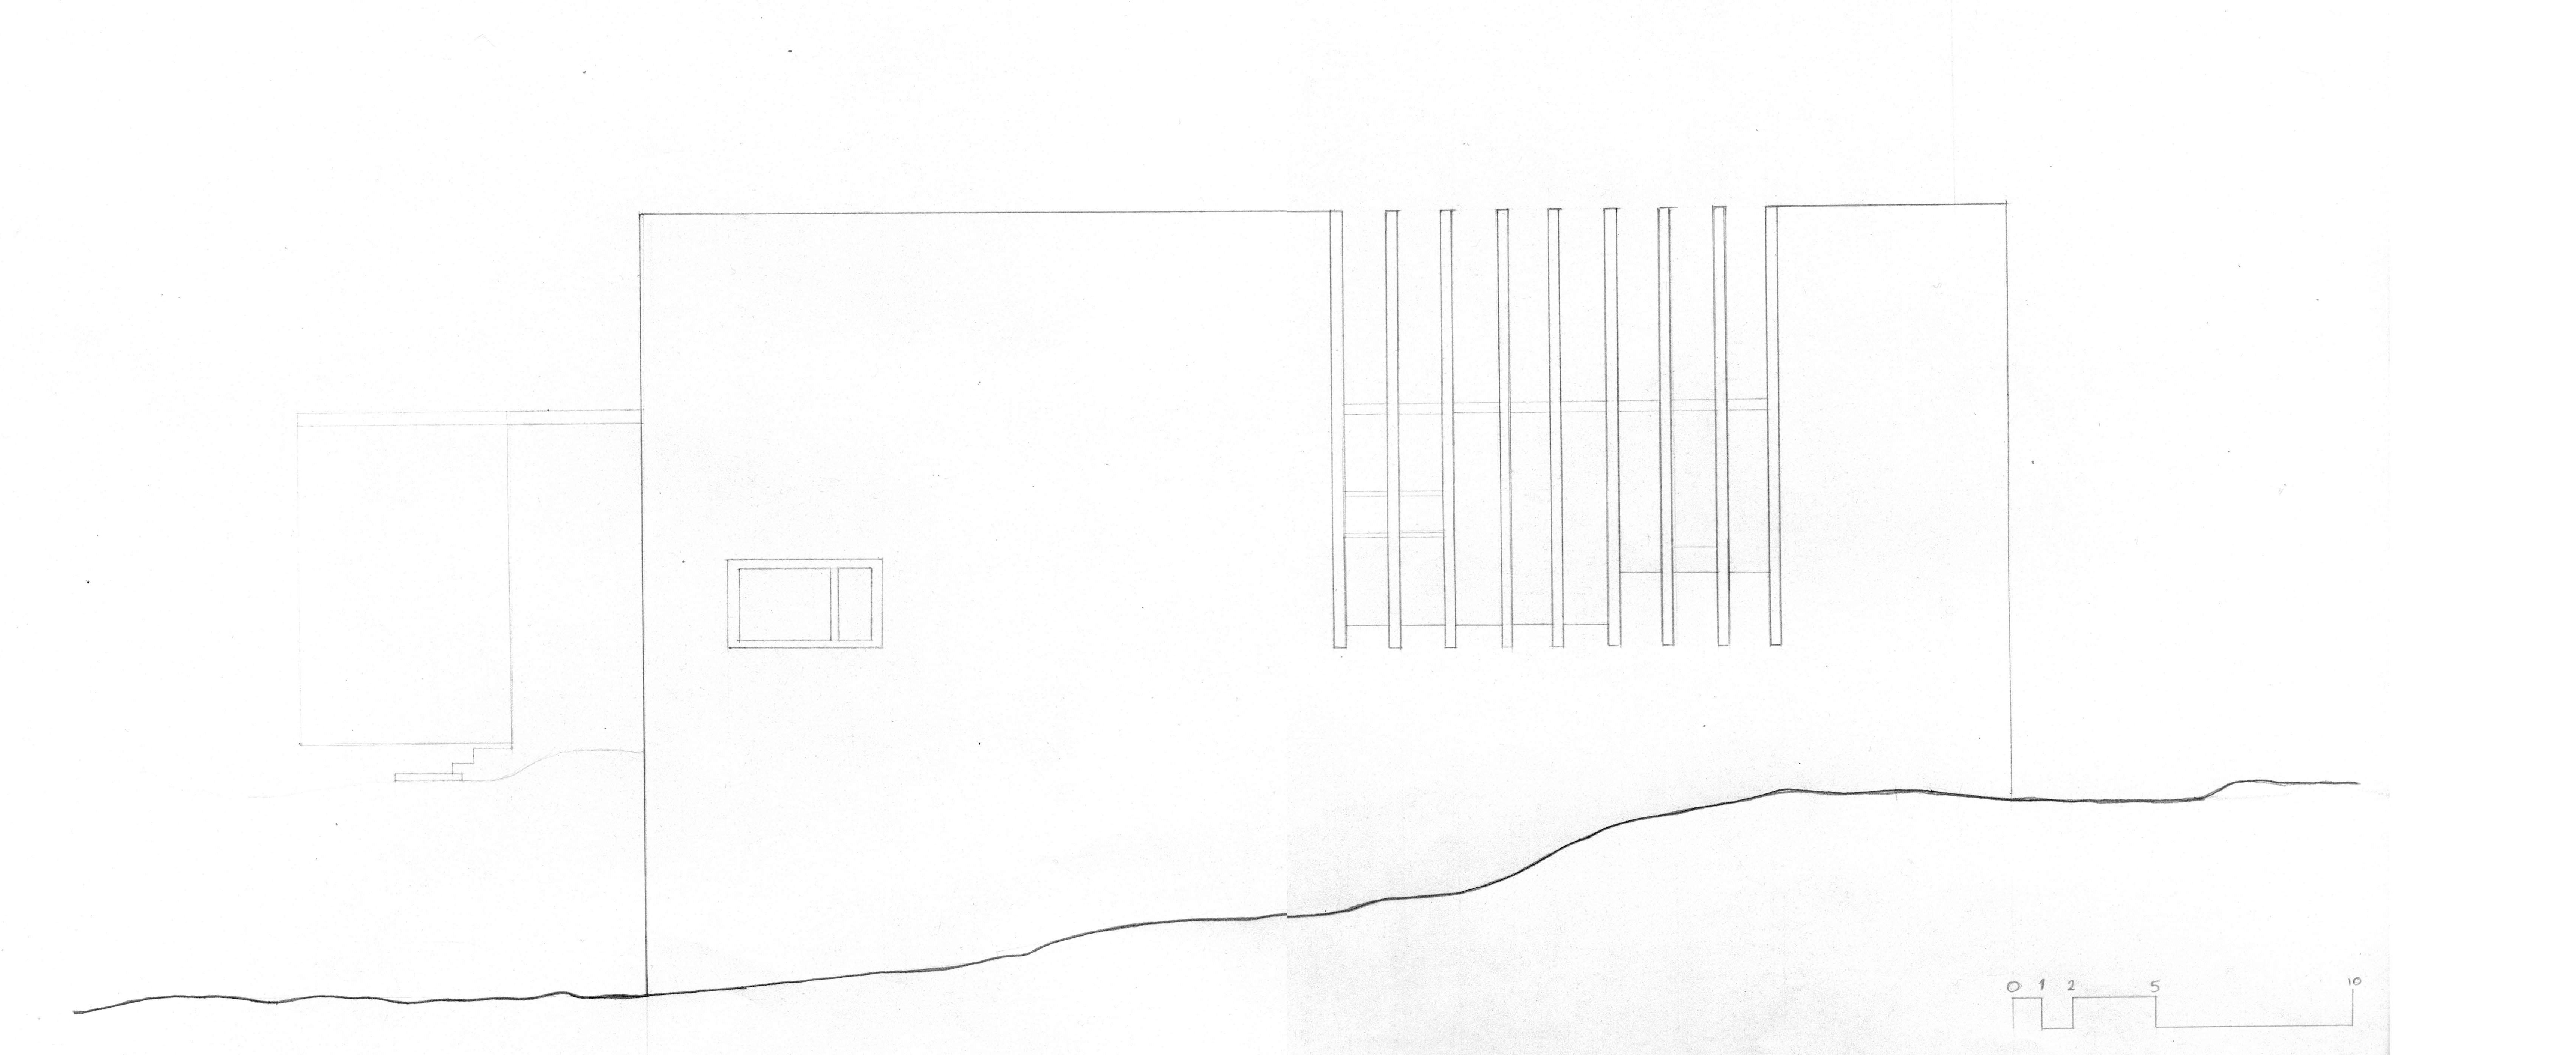 0 1 2 5 10